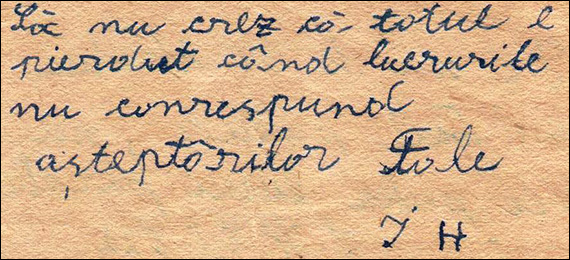 Să nu crez că totul e
pierdut când lucrurile
nu conrespund
așteptărilor Tale
I H